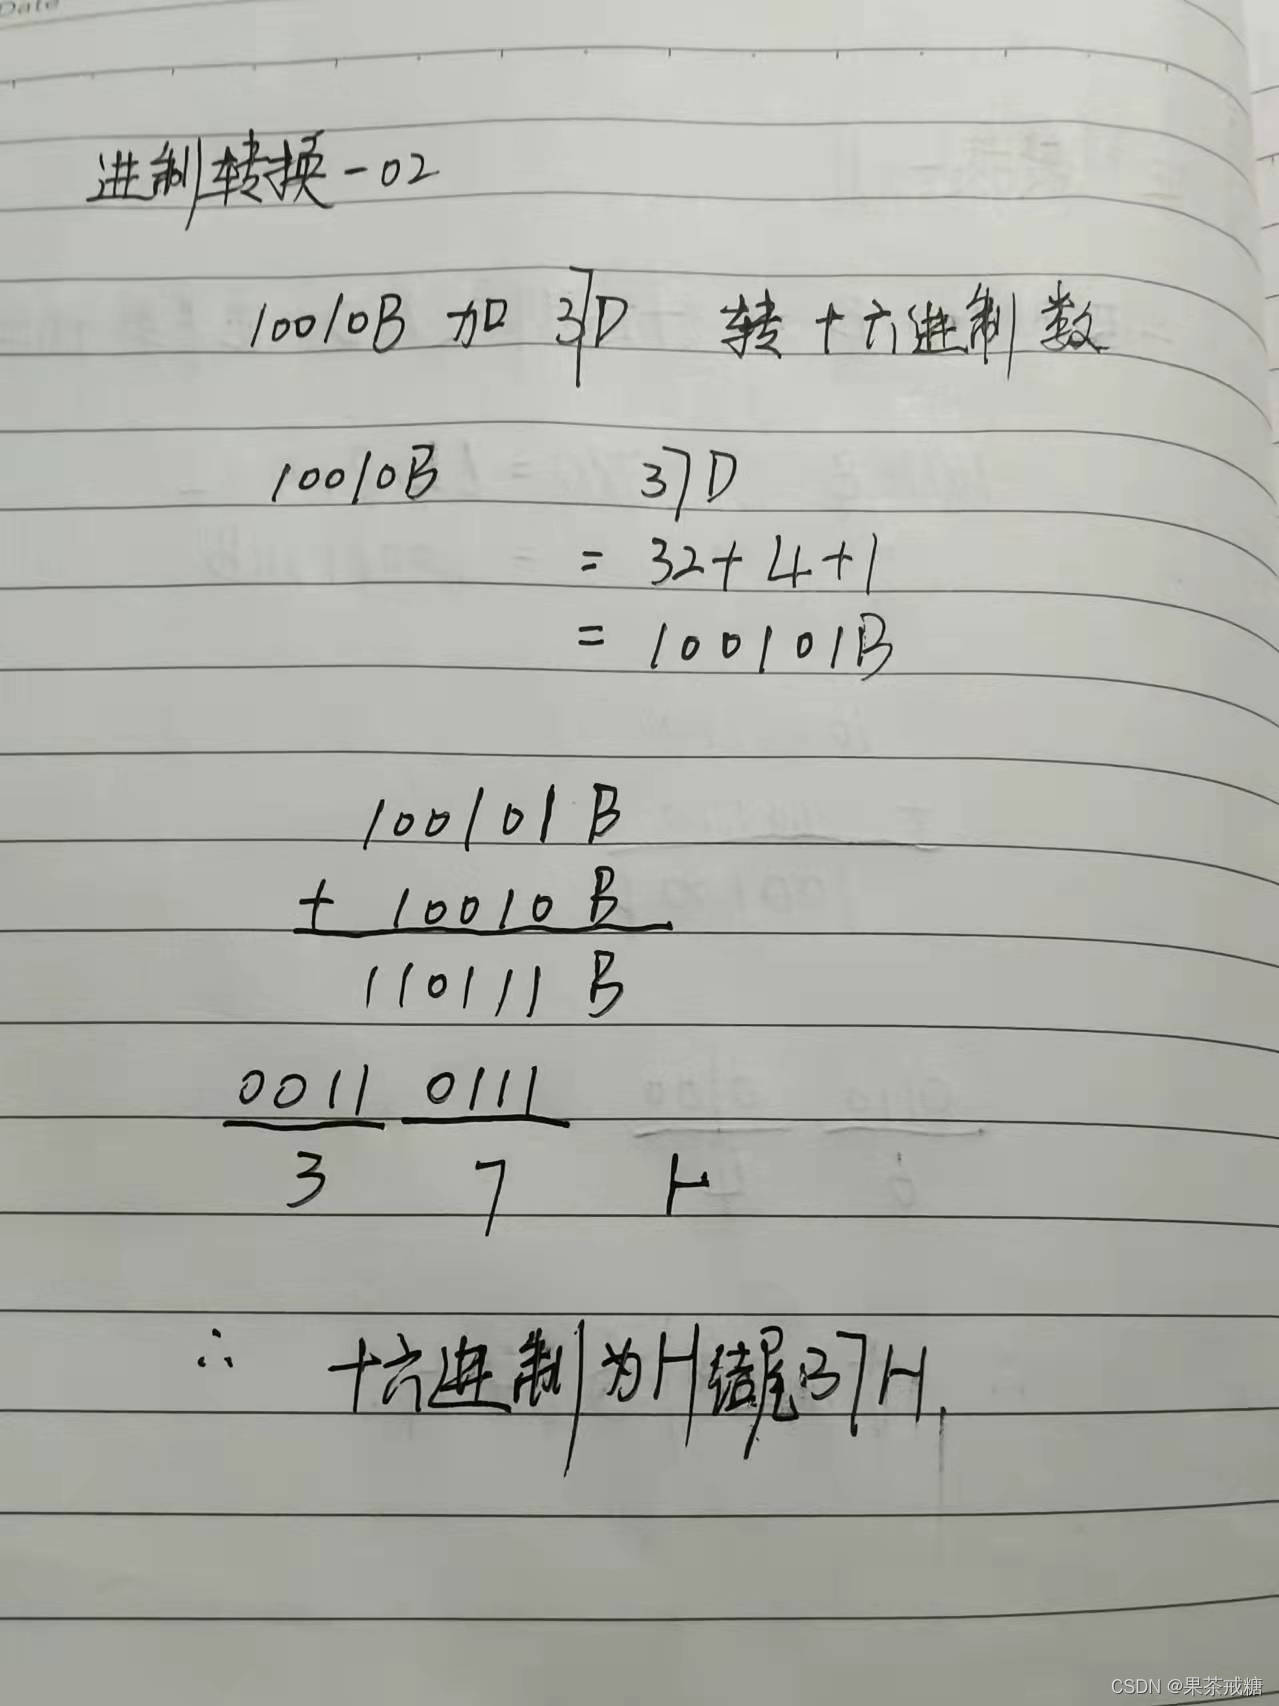 Date
进制转换-02
10010B 加 37D 转十六进制数
10010B 37D
= 32+4+1
= 100101B
100101B
+ 10010B
110111B
0011 0111
3 7 H
∴ 十六进制为H结尾37H.
CSDN @果茶戒糖